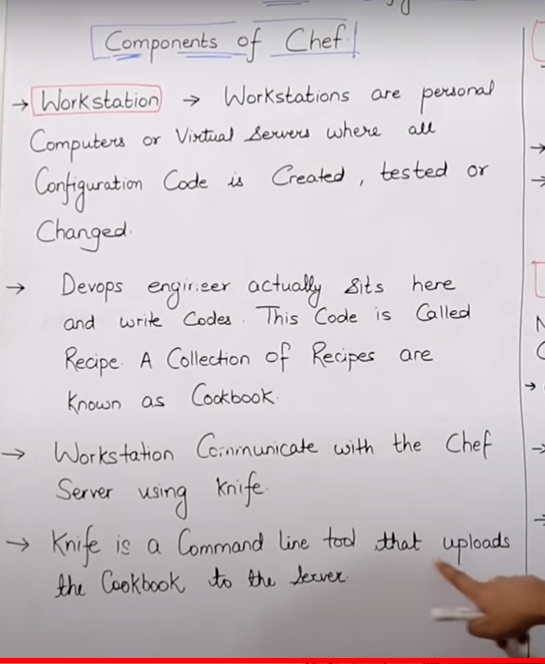 Components of Chef
→ Workstation → Workstations are personal
Computers or Virtual Servers where all
Configuration Code is Created, tested or
Changed.
→ Devops engineer actually sits here
and write Codes. This Code is Called
Recipe. A Collection of Recipes are
known as Cookbook.
→ Workstation Communicate with the Chef
Server using knife.
→ Knife is a Command Line tool that uploads
the Cookbook to the server.